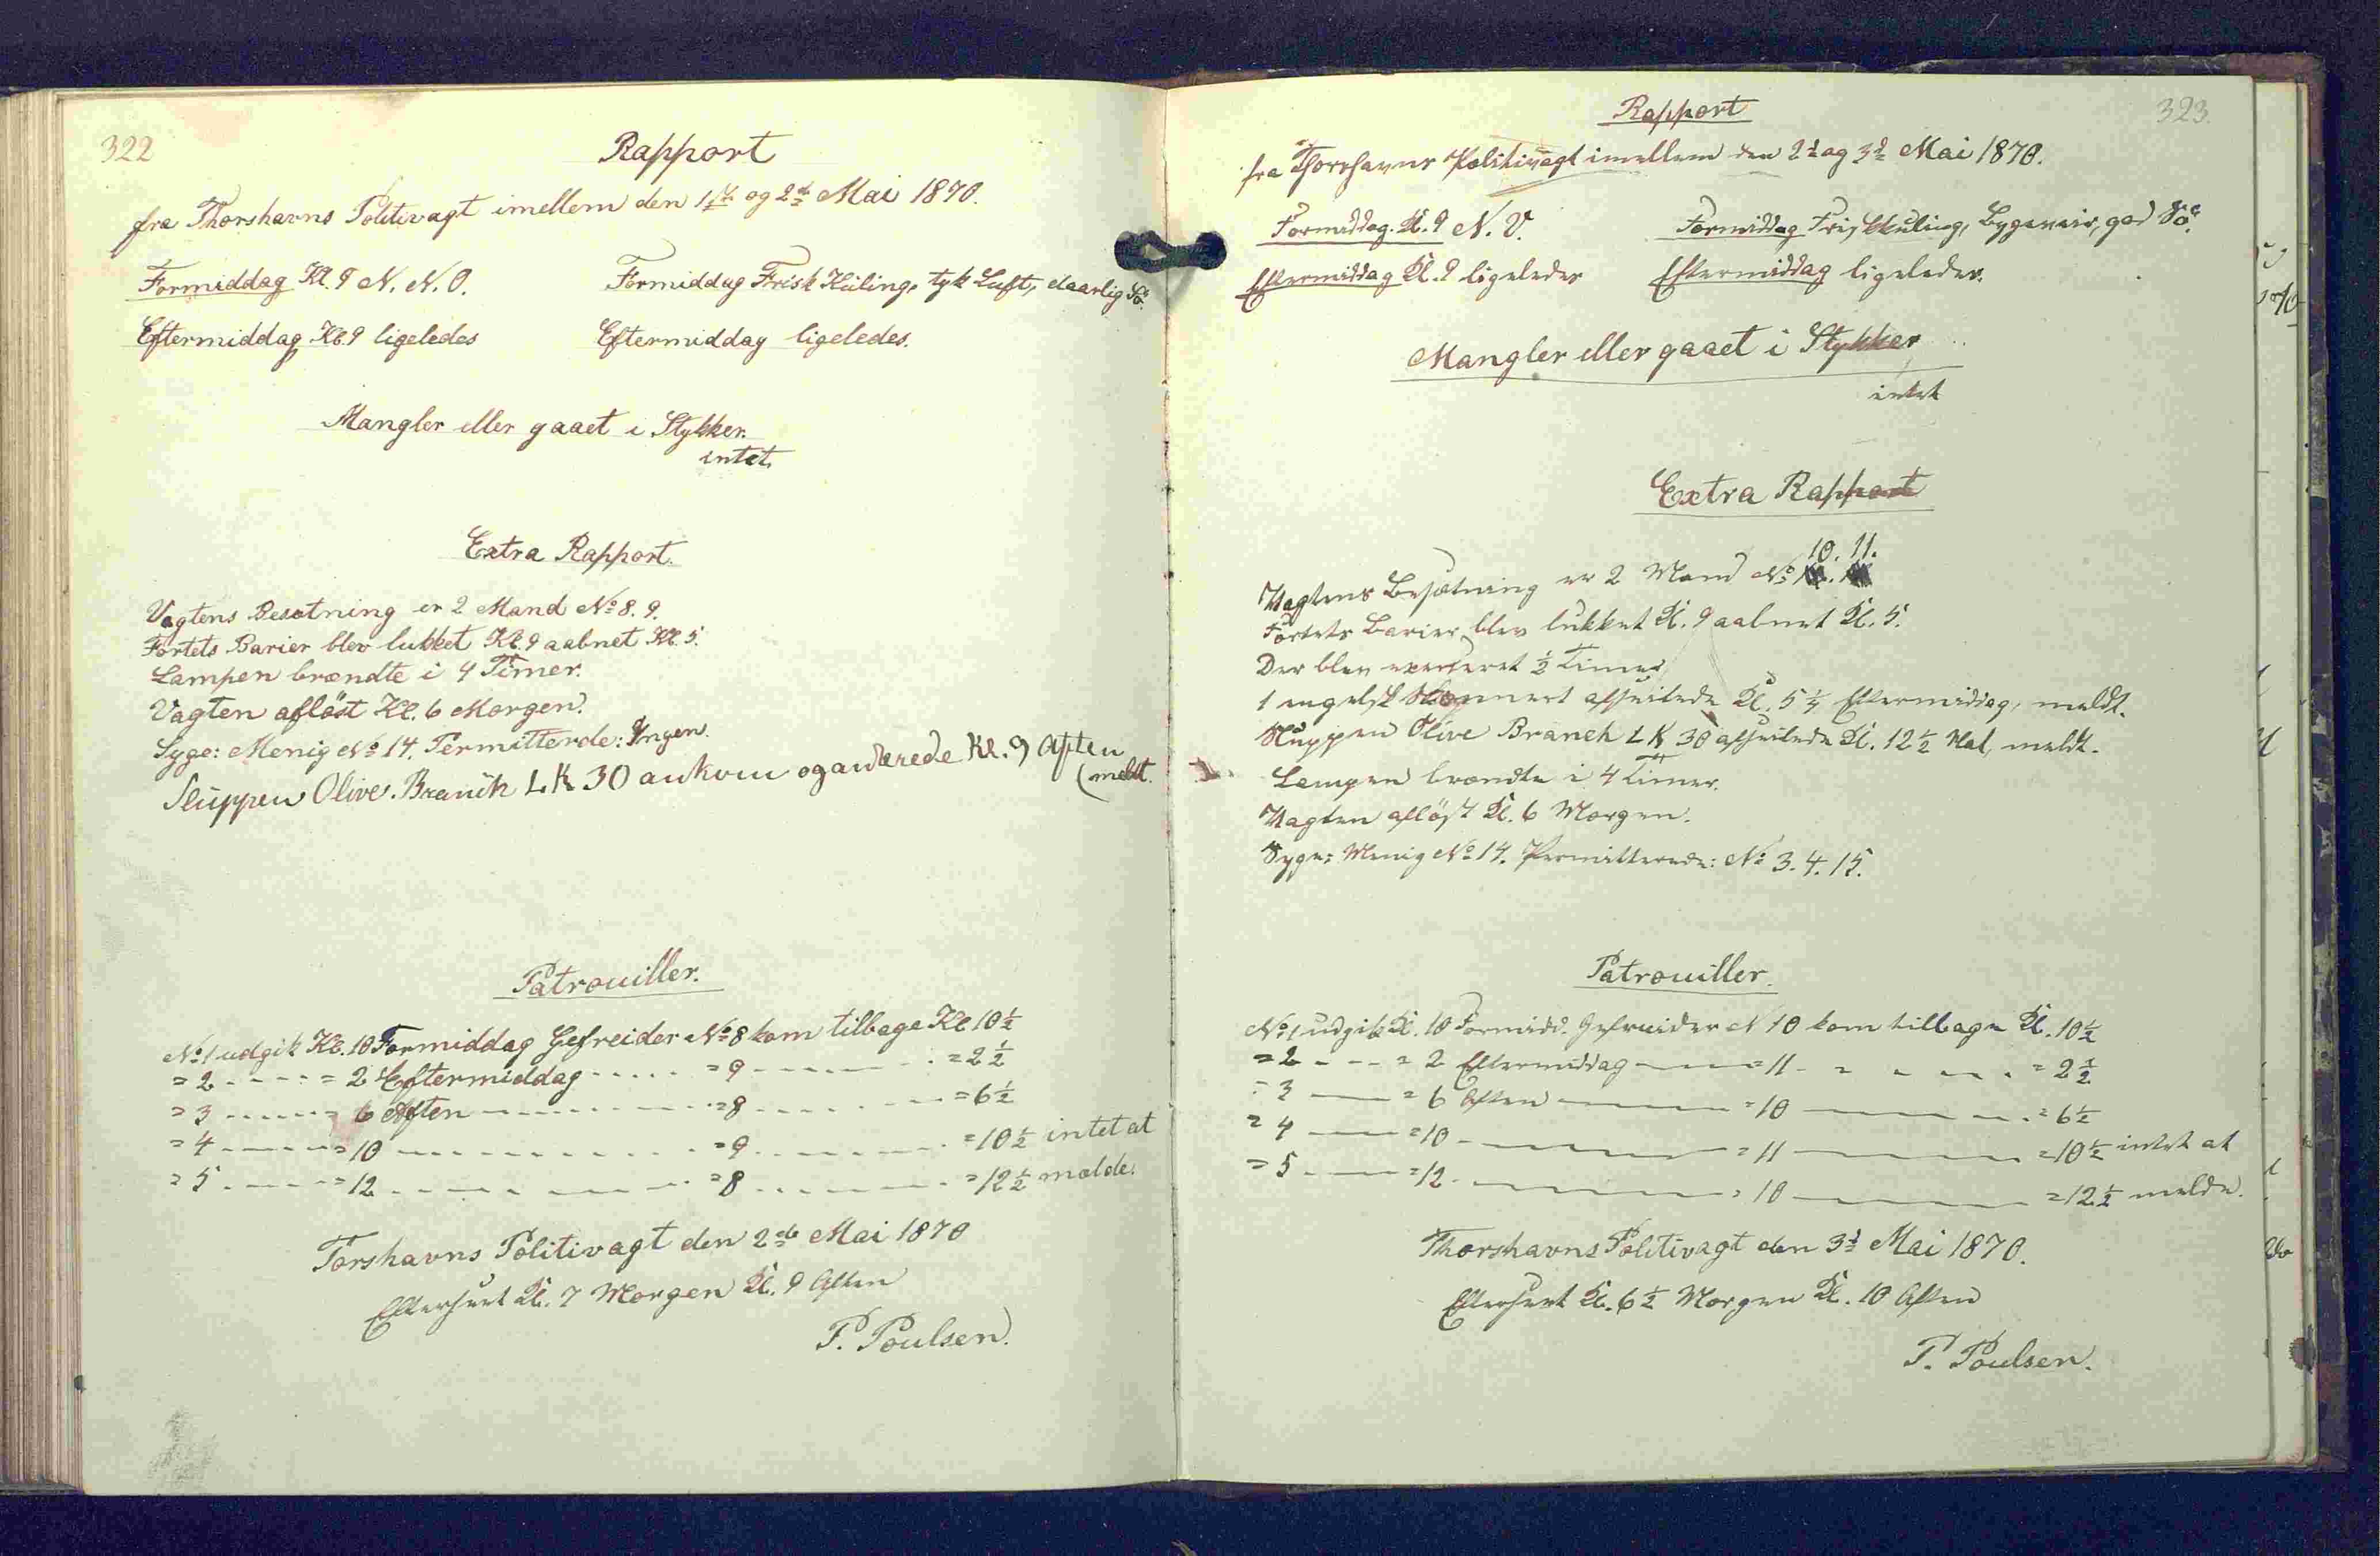 322
Rapport
fra Thorshavns Politivagt imellem den 1ste og 2den Mai 1870.
Formiddag Kl. 9 N. N. O. Formiddag Frisk Kuling, tyk Luft, daarlig Sø.
Eftermiddag Kl. 9 ligeledes Eftermiddag ligeledes.
Mangler eller gaaet i Stykker.
intet.
Extra Rapport.
Vagtens Besætning er 2 Mand No 8. 9.
Fortets Barier blev lukket Kl. 9 aabnet Kl. 5.
Lampen brændte i 4 Timer.
Vagten aflöst Kl. 6 Morgen.
Syge: Menig No 14. Permitterde: Ingen.
Sluppen Olive. Branch LK 30 ankom og ankrede Kl. 9 Aften
(meldt.
Patrouiller.
No 1 udgik Kl. 10 Formiddag Gefreider No 8 kom tilbage Kl 10½
= 2 - - - - = 2 Eftermiddag - - - - = 9 - - - - = 2½
= 3 - - - - = 6 Aften - - - - = 8 - - - - = 6½
= 4 - - - - = 10 - - - - = 9 - - - - = 10½ intet at
= 5 - - - - = 12 - - - - = 8 - - - - = 12½ melde.
Torshavns Politivagt den 2den Mai 1870
Efterseet Kl. 7 Morgen Kl. 9 Aften
P. Poulsen.
323.
Rapport
fra Thorshavns Politivagt imellem den 2d og 3d Mai 1870.
Formiddag. Kl. 9 N. V. Formiddag Frisk Kuling, Bygeveir, god Sø.
Eftermiddag Kl. 9 ligeledes Eftermiddag ligeledes.
Mangler eller gaaet i Stykker
intet
Extra Rapport
10. 11.
Vagtens Besætning er 2 Mand No
Fortets Barier blev lukket Kl. 9 aabnet Kl. 5.
Der blev exerseret ½ Time
1 engelsk Skonnert afseilede Kl. 5¼ Eftermiddag, meldt.
Sluppen Olive Branch LK 30 afseilede Kl. 12½ Nat, meldt.
Lampen brændte i 4 Timer.
Vagten aflöst Kl. 6 Morgen.
Syge: Menig No 14. Permitterede: No 3. 4. 15.
Patrouiller.
No 1 udgik Kl. 10 Formidd. Gefreider N 10 kom tilbage Kl. 10½
= 2 - - - = 2 Eftermiddag - - - = 11 - - - - = 2½
= 3 - - - = 6 Aften - - - = 10 - - - - = 6½
= 4 - - - = 10 - - - - = 11 - - - - = 10½ intet at
= 5 - - - = 12 - - - - = 10 - - - - = 12½ melde.
Thorshavns Politivagt den 3d Mai 1870.
Efterseet Kl. 6½ Morgen Kl. 10 Aften
P. Poulsen.